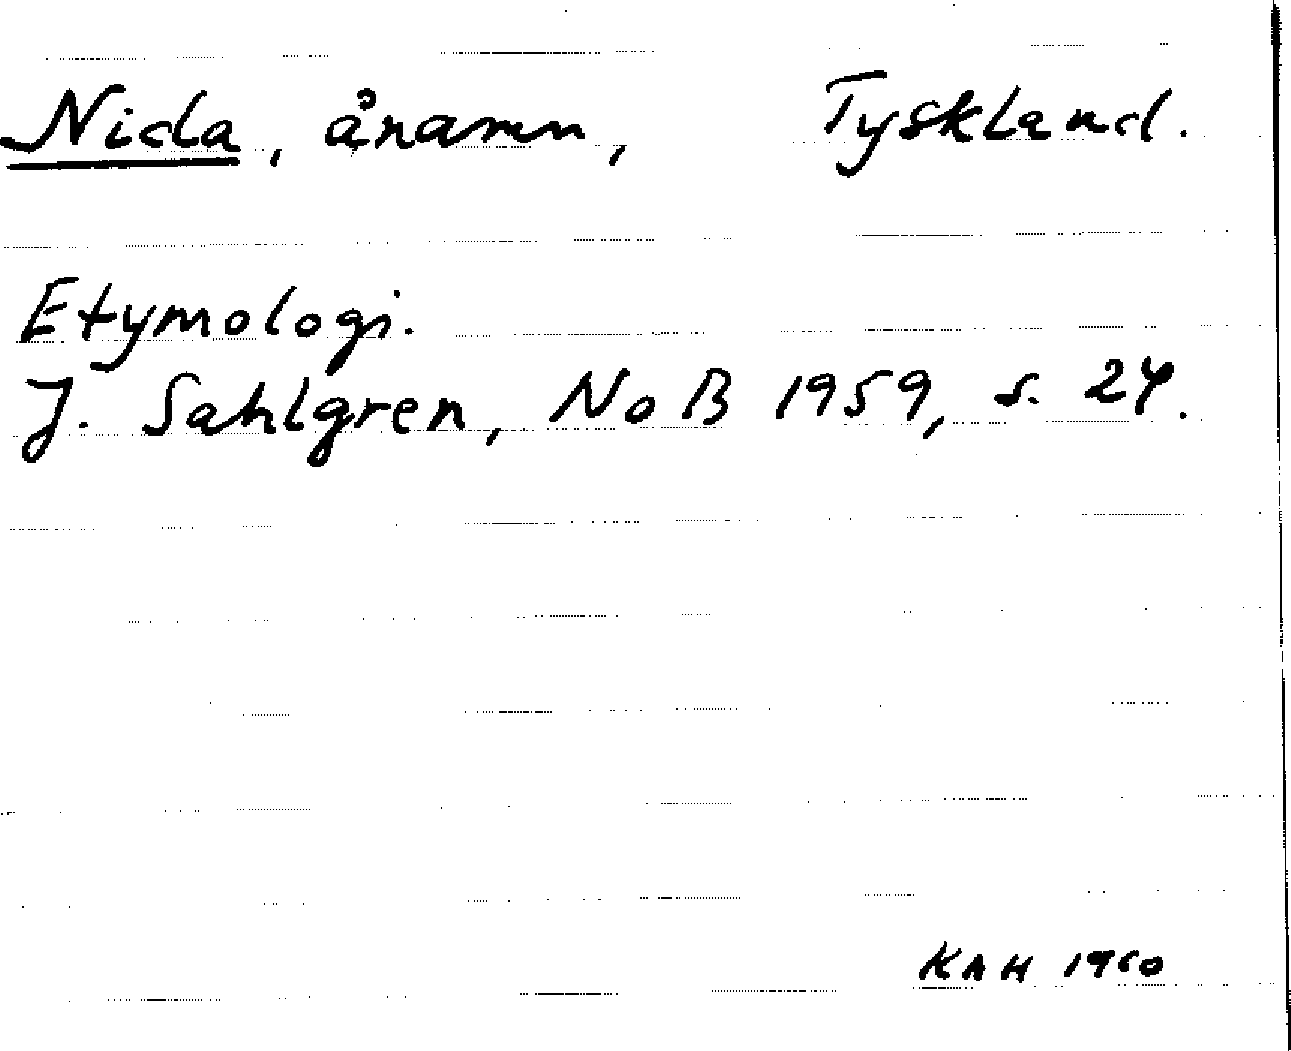 Nida, ånamn, Tyskland.
Etymologi.
J. Sahlgren, NoB 1959, s. 24.
KAH 1960